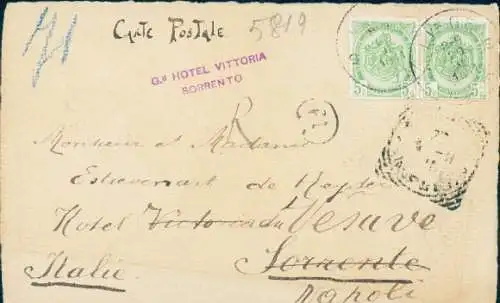 Carte Postale
5819
Gd HOTEL VITTORIA
SORRENTO
R
Monsieur et Madame
Estievenart de
Hotel Victoria du Vesuve
Italie
Sorrente
Napoli
5 5 5